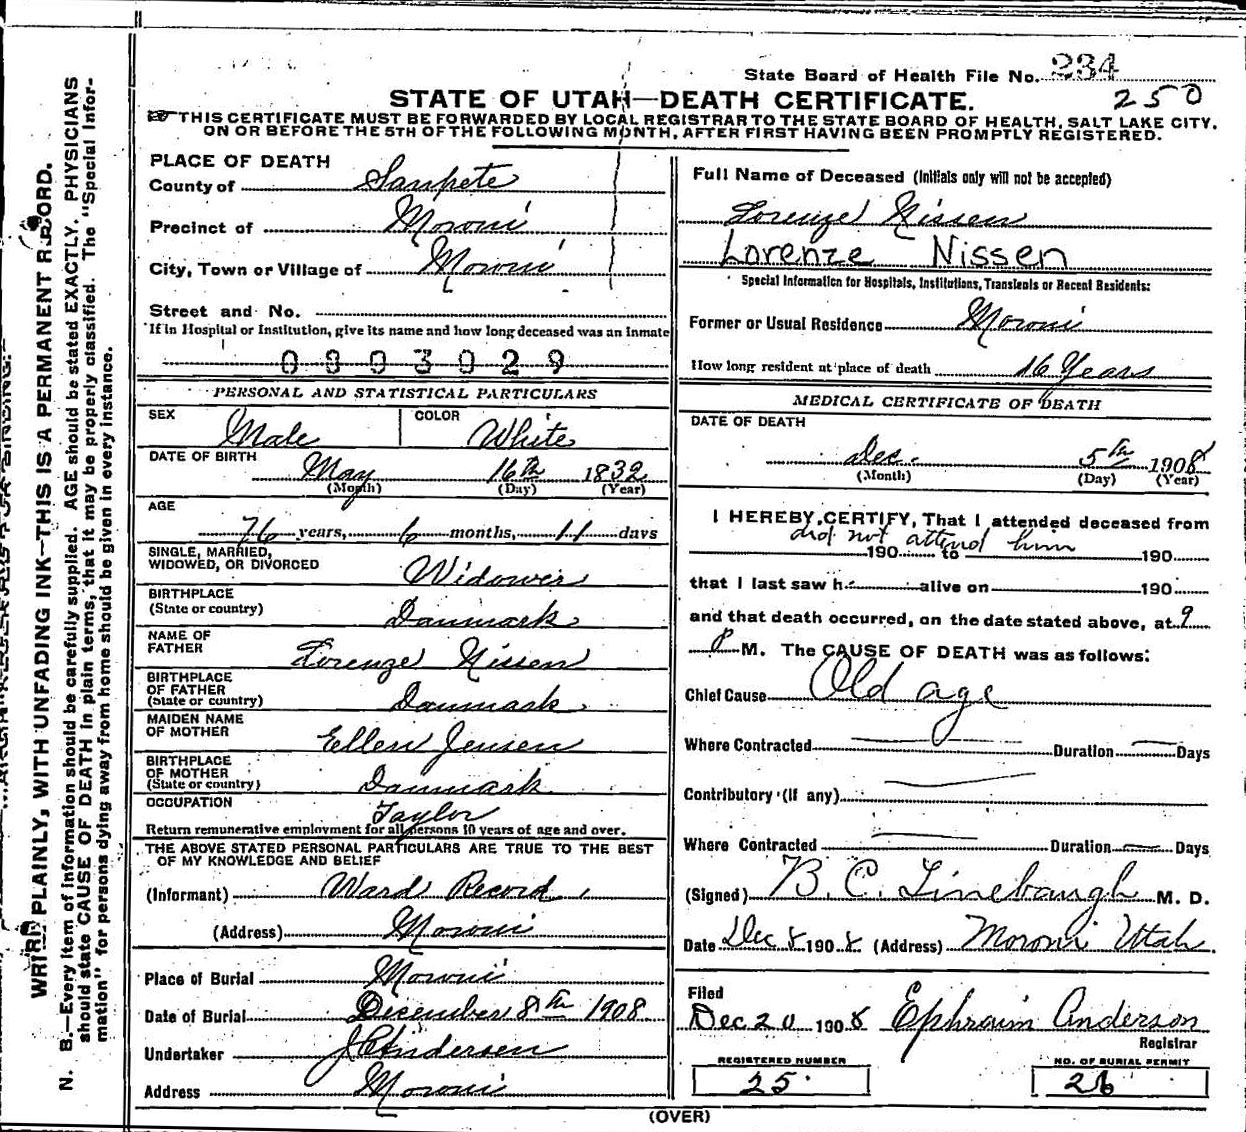 State Board of Health File No. 234
250
STATE OF UTAH—DEATH CERTIFICATE.
THIS CERTIFICATE MUST BE FORWARDED BY LOCAL REGISTRAR TO THE STATE BOARD OF HEALTH, SALT LAKE CITY,
ON OR BEFORE THE 5TH OF THE FOLLOWING MONTH, AFTER FIRST HAVING BEEN PROMPTLY REGISTERED.
WRITE PLAINLY, WITH UNFADING INK—THIS IS A PERMANENT RECORD.
N. B.—Every item of information should be carefully supplied. AGE should be stated EXACTLY. PHYSICIANS
should state CAUSE OF DEATH in plain terms, that it may be properly classified. The "Special Infor-
mation" for persons dying away from home should be given in every instance.
PLACE OF DEATH
County of Sanpete
Precinct of Moroni
City, Town or Village of Moroni
Street and No.
If in Hospital or Institution, give its name and how long deceased was an inmate
0803029
PERSONAL AND STATISTICAL PARTICULARS
SEX Male COLOR White
DATE OF BIRTH May 16th 1832
(Month) (Day) (Year)
AGE
76 years, 6 months, 11 days
SINGLE, MARRIED,
WIDOWED, OR DIVORCED Widower
BIRTHPLACE
(State or country) Danmark
NAME OF
FATHER Lorenze Nissen
BIRTHPLACE
OF FATHER
(State or country) Danmark
MAIDEN NAME
OF MOTHER Ellen Jensen
BIRTHPLACE
OF MOTHER
(State or country) Danmark
OCCUPATION Taylor
Return remunerative employment for all persons 10 years of age and over.
THE ABOVE STATED PERSONAL PARTICULARS ARE TRUE TO THE BEST
OF MY KNOWLEDGE AND BELIEF
(Informant) Ward Record
(Address) Moroni
Place of Burial Moroni
Date of Burial December 8th 1908
Undertaker J Andersen
Address Moroni
Full Name of Deceased (Initials only will not be accepted)
Lorenze Nissen
Lorenze Nissen
Special Information for Hospitals, Institutions, Transients or Recent Residents:
Former or Usual Residence Moroni
How long resident at place of death 16 Years
MEDICAL CERTIFICATE OF DEATH
DATE OF DEATH
Dec. 5th 1908
(Month) (Day) (Year)
I HEREBY CERTIFY, That I attended deceased from
did not attend him
190 to 190
that I last saw h alive on 190
and that death occurred, on the date stated above, at 9
P M. The CAUSE OF DEATH was as follows:
Chief Cause Old age
Where Contracted — Duration — Days
Contributory (if any) —
Where Contracted — Duration — Days
(Signed) B. C. Linebaugh M. D.
Date Dec 8 1908 (Address) Moroni Utah
Filed
Dec 20 1908 Ephraim Anderson
Registrar
REGISTERED NUMBER
25
NO. OF BURIAL PERMIT
26
(OVER)